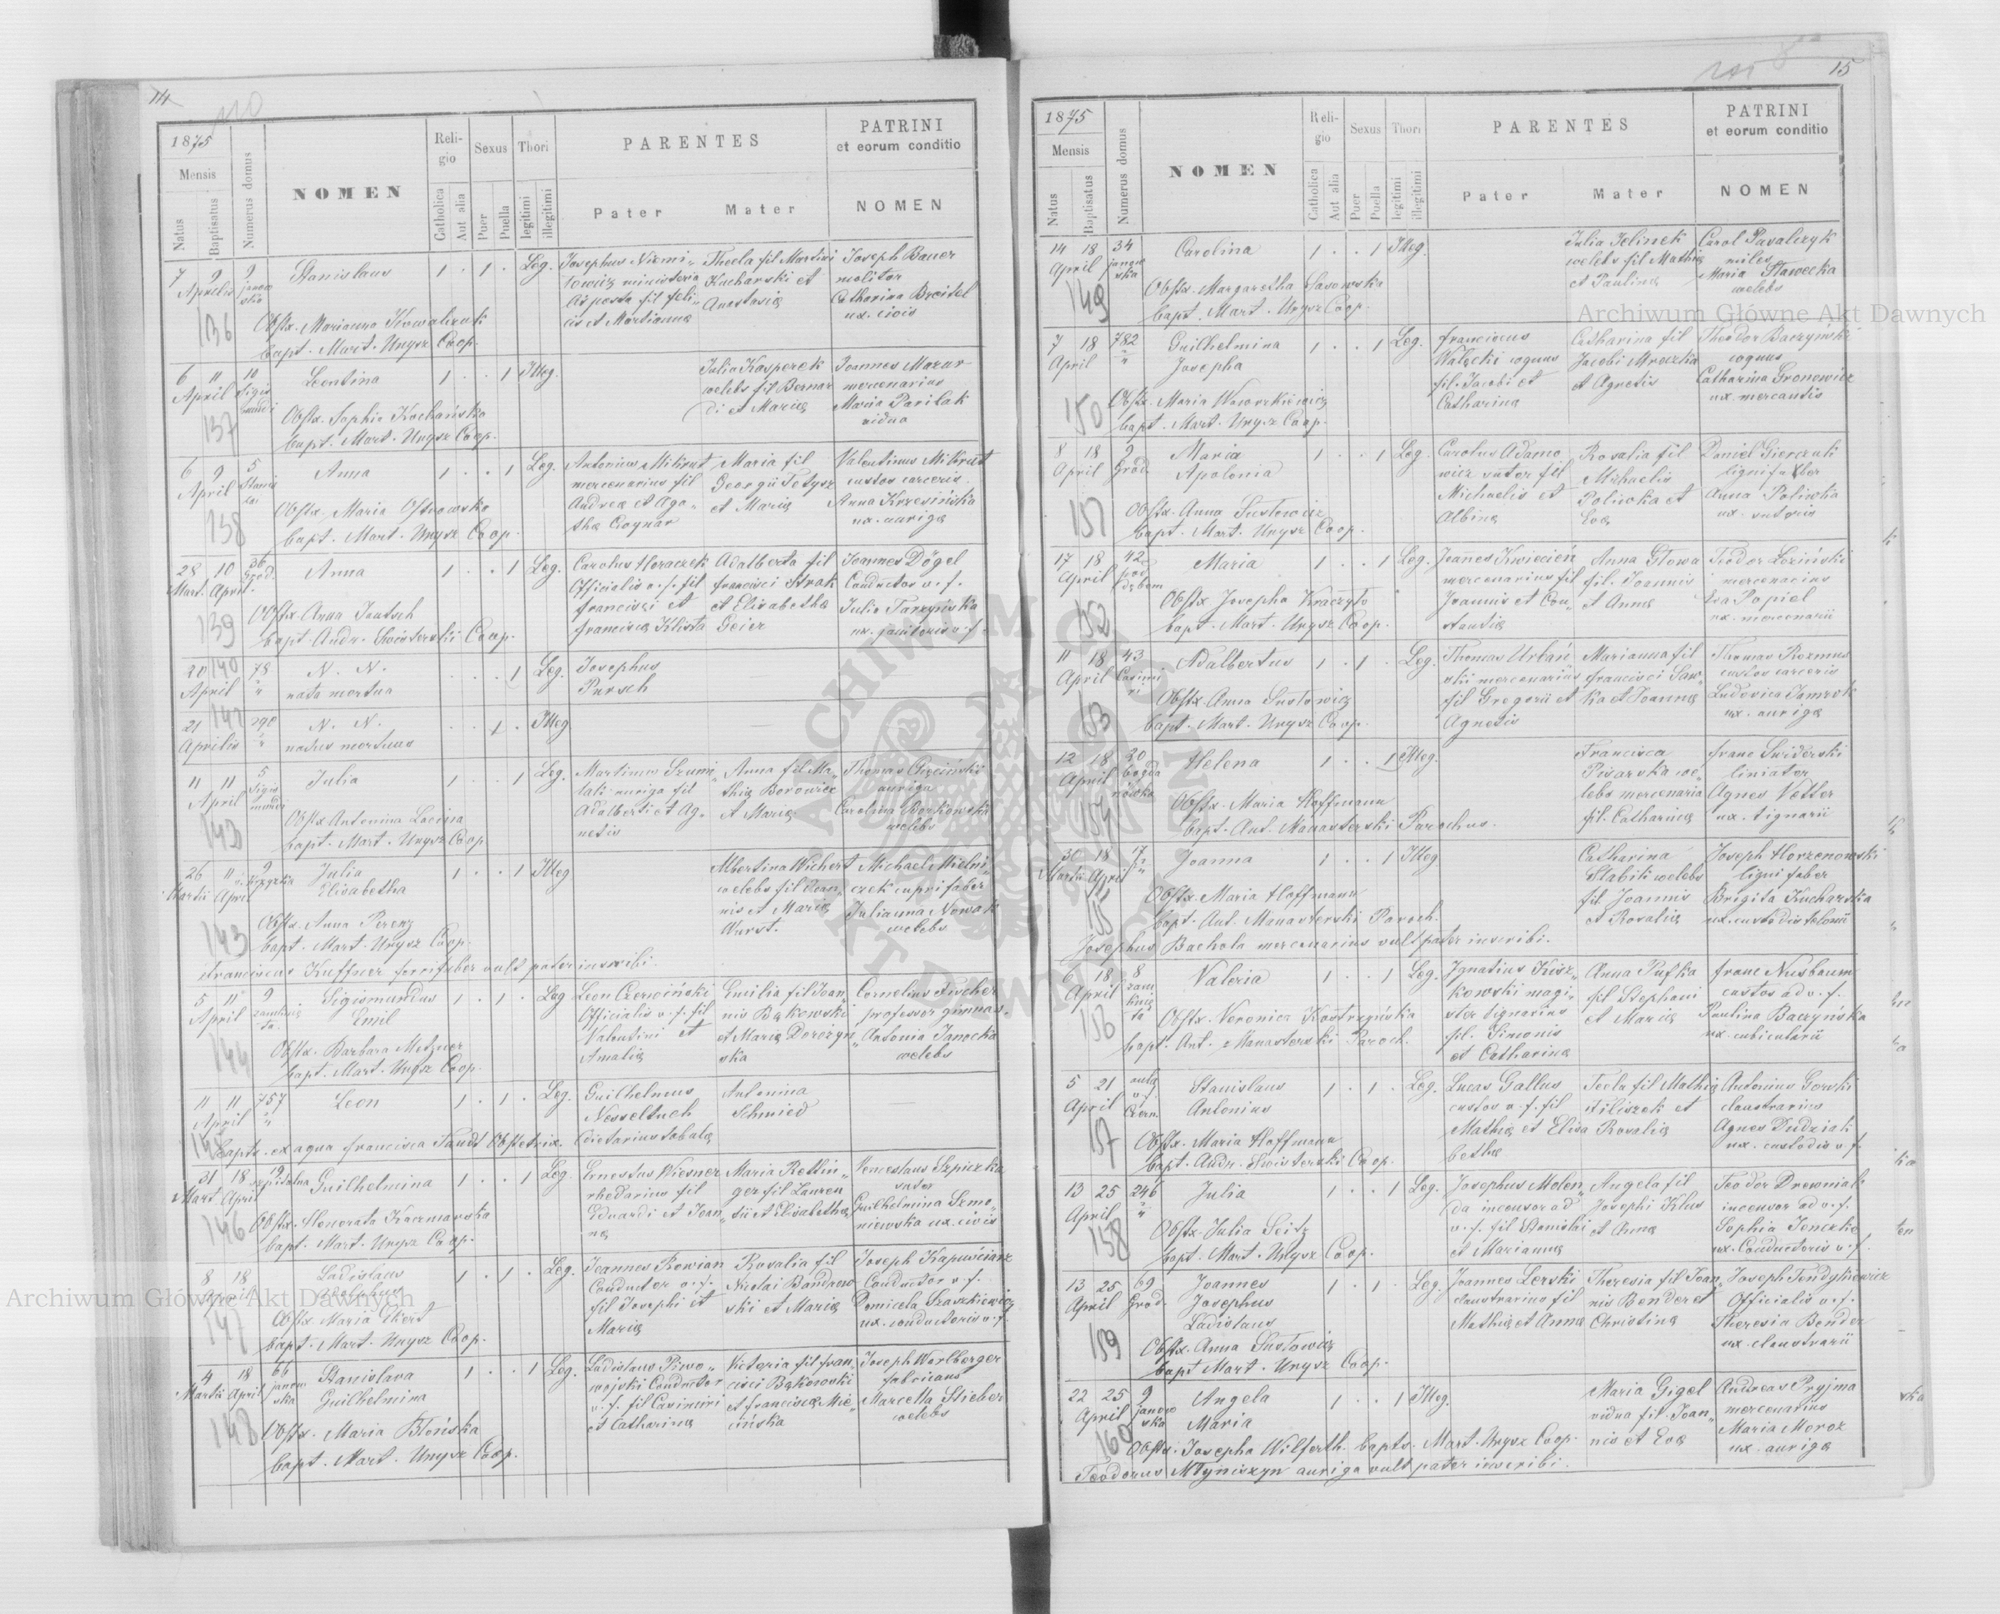 14
110
1875
Mensis
Natus
Baptisatus
Numerus domus
NOMEN
Religio
Catholica
Aut alia
Sexus
Puer
Puella
Thori
legitimi
illegitimi
PARENTES
Pater
Mater
PATRINI
et eorum conditio
NOMEN
7 9 Aprilis
136
Stanislaus
Obstx. Marianna Kowalczuk
bapt. Mart. Unysz Coop.
Leg.
Josephus
Thecla fil Martini
Kucharski et
Anastasiæ
Joseph Bauer
molitor
Catharina Breitel
ux. civis
6 11 April
137
Leontina
Obstx. Sophia Kochańska
bapt. Mart. Unysz Coop.
Illeg.
Julia Kasperek
celebs fil Bernar
di et Mariæ
Joannes Mazur
mercenarius
Maria Parilak
vidua
6 9 April
138
Anna
Obstx. Maria Ostrowska
bapt. Mart. Unysz Coop.
Leg.
Antonius Mikrut
mercenarius fil
Andreæ et Aga-
thæ Cwynar
Maria fil
Georgii Totysz
et Mariæ
Valentinus Mikrut
custos carceris
Anna Krzesińska
ux. aurigæ
28 10
Mart. April.
36 Grod.
139
Anna
Obstx. Anna Jentsch
bapt. Andr. Swisterski Coop.
Leg.
Carolus Horaczek
Officialis v. f. fil
Francisci et
Franciscæ Klista
Adalberta fil
Francisci Strak
et Elisabethæ
Geier
Joannes Dögel
Conductor v. f.
Julia Tarzyńska
ux. janitoris v. f.
20 April
140
78
N. N.
nata mortua
Leg.
Josephus
Pursch
21 Aprilis
141
298
N. N.
natus mortuus
Illeg
11 11 April
142
5 Sigis
mundi
Julia
Obstx Antonina Lacina
bapt. Mart. Unysz Coop
Leg.
Martinus Szumi-
lak auriga fil
Adalberti et Ag-
netis
Anna fil Ma-
thiæ Borowiec
et Mariæ
Thomas
auriga
Carolina Borkowska
celebs
26 11
Martii April
143
Julia
Elisabetha
Obstx. Anna Perenz
bapt. Mart. Unysz Coop.
Illeg
Albertina Wichert
celebs fil Joan-
nis et Mariæ
Wurst.
Michael Mielni-
czek cuprifaber
Julianna Nowak
celebs
Franciscus Kuffner ferrifaber vult pater inscribi.
5 11 April
144
Sigismundus
Emil
Obstx. Barbara Metzner
bapt. Mart. Unysz Coop.
Leg
Leon Czerwiński
Officialis v. f. fil
Valentini et
Amaliæ
Emilia fil Joan-
nis Bąkowski
et Mariæ Dorożyn
ska
Cornelius Fischer
professor gymnas.
Antonia Janocka
celebs
11 11 April
145
757
Leon
Leg.
Guilhelmus
Nesseltuch
diætarius tabulæ
Antonina
Schmied
bapts. ex aqua Francisca Taudt Obstetrix.
31 18
Mart April
146
Guilhelmina
Obstx. Honorata Kaczmarska
bapt. Mart. Unysz Coop.
Leg
Ernestus Wiesner
rhedarius fil
Eduardi et Joan-
næ
Maria Rettin-
ger fil Lauren-
tii et Elisabethæ
Venceslaus Szpiczka
sutor
Guilhelmina Szmo-
niewska ux. civis
8 18 April
147
Ladislaus
Adolphus
Obstx Maria Ekert
bapt. Mart. Unysz Coop.
Leg.
Joannes Rowian
Conductor v. f.
fil Josephi et
Mariæ
Rosalia fil
Nicolai Bandrow
ski et Mariæ
Joseph Kapuścianz
Conductor v. f.
Domicela Szaszkiewicz
ux. conductoris v. f.
4 18
Martii April
148
66
janow
ska
Stanislava
Guilhelmina
Obstx. Maria Błońska
bapt. Mart. Unysz Coop.
Leg.
Ladislaus Piwo-
wojski Conductor
v. f. fil Casimiri
et Catharinæ
Victoria fil Fran-
cisci Bąkowski
et Franciscæ Mie-
cińska
Joseph Warlberger
fabricans
Marcella Stieber
celebs
15
1875
Mensis
Natus
Baptisatus
Numerus domus
NOMEN
Religio
Catholica
Aut alia
Sexus
Puer
Puella
Thori
legitimi
illegitimi
PARENTES
Pater
Mater
PATRINI
et eorum conditio
NOMEN
14 18 April
149
34
janow
ska
Carolina
Obstx. Margaretha Sasowska
bapt. Mart. Unysz Coop.
Illeg.
Julia Jelinek
celebs fil Mathiæ
et Paulinæ
Carol Pavalczyk
miles
Maria Stawecka
celebs
7 18 April
150
782
Guilhelmina
Josepha
Obstx. Maria Wawrzkiewicz
bapt. Mart. Unysz Coop.
Leg.
Franciscus
Wałęcki coquus
fil. Jacobi et
Catharinæ
Catharina fil
Jacobi Mroczka
et Agnetis
Theodor Baczyński
coquus
Catharina Gronowicz
ux. mercantis
8 18 April
151
9
Grod.
Maria
Apolonia
Obstx. Anna Sustowicz
bapt. Mart. Unysz Coop.
Leg.
Carolus Adamo
wicz sutor fil
Michaelis et
Albinæ
Rosalia fil
Michaelis
Poliwka et
Evæ
Daniel Gierczak
lignifaber
Anna Poliwka
ux. sutoris
17 18 April
152
42
pod
dębem
Maria
Obstx Josepha Kraczyło
bapt. Mart. Unysz Coop.
Leg.
Joanes Kwiecień
mercenarius fil
Joannis et Con-
stantiæ
Anna Głowa
fil. Joannis
et Annæ
Teodor Łoziński
mercenarius
Eva Popiel
ux. mercenarii
11 18 April
153
43
Casimi
ri
Adalbertus
Obstx. Anna Sustowicz
bapt. Mart. Unysz Coop.
Leg.
Thomas Urbań
ski mercenarius
fil Gregorii et
Agnetis
Marianna fil
Francisci Saw-
ka et Joannæ
Thomas Rozmus
custos carceris
Ludovica Jamrok
ux. aurigæ
12 18 April
154
20
bogda
nówka
Helena
Obstx. Maria Hoffmann
bapt. Ant. Manasterski Parochus.
Illeg.
Francisca
Pisarska ce-
lebs mercenaria
fil. Catharinæ
Franc Swiderski
liniator
Agnes Vetter
ux. tignarii
30 18
Martii April
155
17
Joanna
Obstx Maria Hoffmann
bapt. Ant. Manasterski Paroch.
Illeg
Catharina
Slabik celebs
fil Joannis
et Rosaliæ
Joseph Horzenowski
lignifaber
Brigita Kucharska
ux. custodis telonii
Josephus Bachola mercenarius vult pater inscribi.
6 18 April
156
8
zam
knię
ta
Valeria
Obstx. Veronica Kostrzyńska
bapt. Ant. Manasterski Paroch.
Leg.
Ignatius Kisz-
kowski magi-
ster tignarius
fil. Simonis
et Catharinæ
Anna Pufka
fil Stephani
et Mariæ
Franc Nusbaum
custos ad v. f.
Paulina Baczynska
ux. cubicularii
5 21 April
157
Stanislaus
Antonius
Obstx. Maria Hoffmann
bapt. Andr. Swisterski Coop.
Leg.
Lucas Gallus
custos v. f. fil
Mathiæ et Elisa
bethæ
Tecla fil Mathiæ
Filiszek et
Rosaliæ
Antonius Gorski
claustrarius
Agnes Dudziak
ux. custodis v. f.
13 25 April
158
246
Julia
Obstx. Julia Seitz
bapt. Mart. Unysz Coop.
Leg.
Josephus Molen-
da incensor ad
v. f. fil Stanislai
et Mariannæ
Angela fil
Josephi Klus
et Annæ
Teodor Drewniak
incensor ad v. f.
Sophia Jonczko
ux. Conductoris v. f.
13 25 April
159
69
Grod.
Joannes
Josephus
Ladislaus
Obstx. Anna Sustowicz
bapt Mart. Unysz Coop.
Leg.
Joannes Lerski
claustrarius fil
Mathiæ et Annæ
Theresia fil Joan-
nis Bender et
Christinæ
Joseph Fendykiewicz
Officialis v. f.
Theresia Bender
ux. claustrarii
22 25 April
160
9
janow
ska
Angela
Maria
Illeg.
Maria Gigel
vidua fil. Joan-
nis et Evæ
Andreas Pryjma
mercenarius
Maria Moroz
ux. aurigæ
Obstx. Josepha Wilferth. bapts. Mart. Unysz Coop.
Teodorus Młyniszyn auriga vult pater inscribi.
Archiwum Główne Akt Dawnych
Archiwum Główne Akt Dawnych
ARCHIWUM GŁÓWNE AKT DAWNYCH